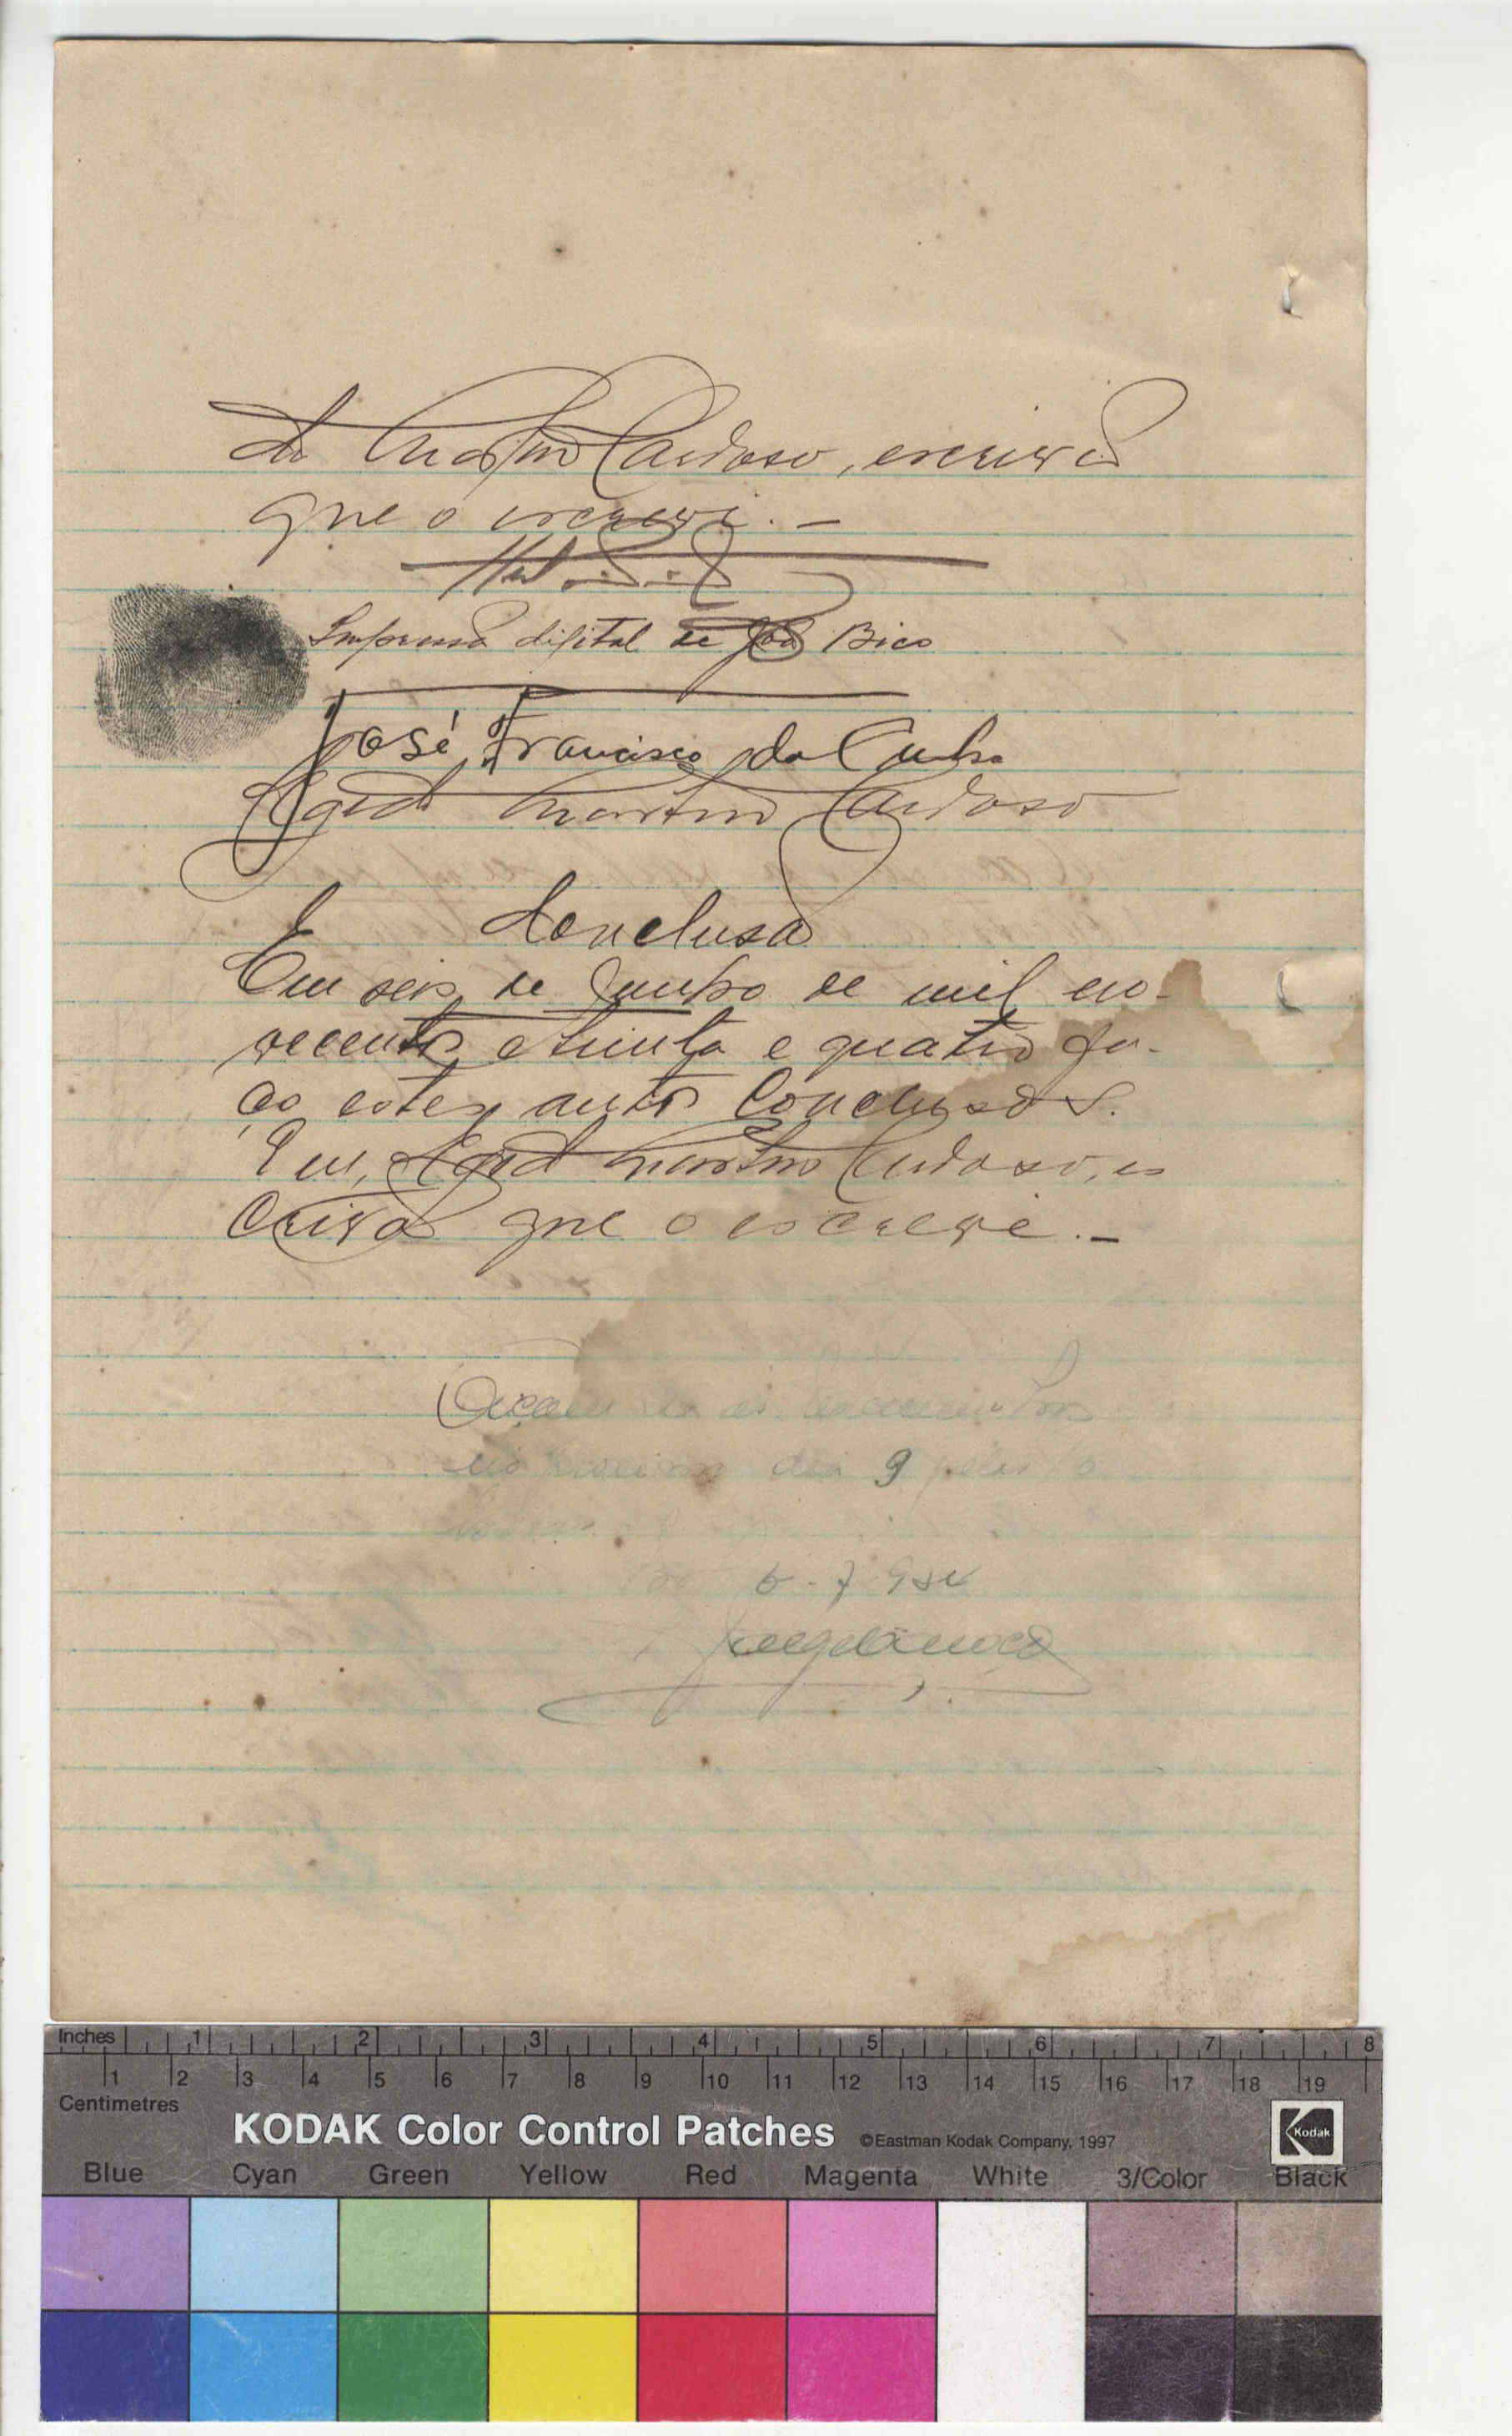 do Martins Cardoso, escrivão
que o escrevi. —
Impressão digital de João Bico
José Francisco da Cunha
Egid Martins Cardoso
Conclusão
Em seis de Junho de mil no-
vecentos e trinta e quatro fa-
ço estes autos Conclusos.
Eu, Egid Martins Cardoso, es
crivão que o escrevi. —
dia 9
6-7-934
Inches 1 2 3 4 5 6 7 8
1 2 3 4 5 6 7 8 9 10 11 12 13 14 15 16 17 18 19
Centimetres
KODAK Color Control Patches ©Eastman Kodak Company, 1997 Kodak
Blue Cyan Green Yellow Red Magenta White 3/Color Black